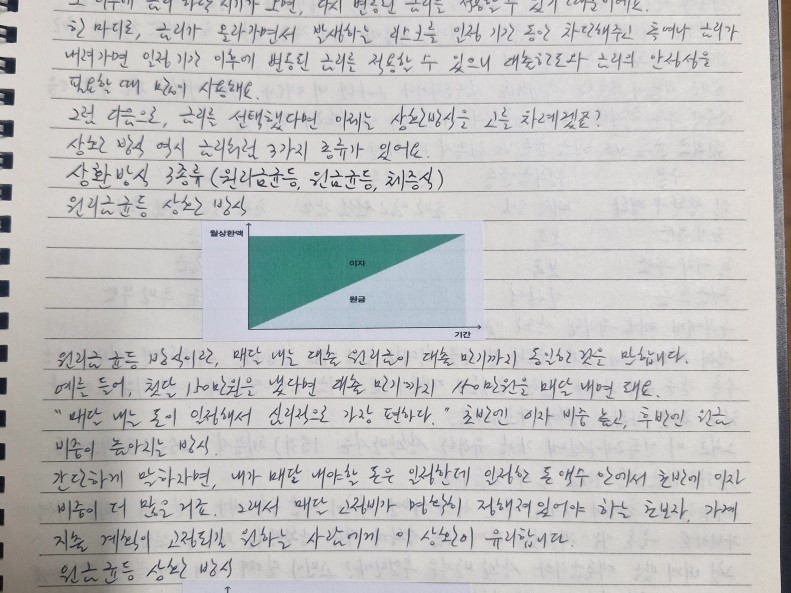 이후에 금리 하락 시기가 오면, 다시 변동된 금리를 적용할 수 있기 때문이에요.
한 마디로, 금리가 올라가면서 발생하는 리스크를 일정 기간 동안 차단해주고 혹여나 금리가
내려가면 일정 기간 이후에 변동된 금리를 적용할 수 있으니 대출한도와 금리의 안정성을
필요할 때 많이 사용해요.
그럼 다음으로, 금리를 선택했다면 이제는 상환방식을 고를 차례겠죠?
상환 방식 역시 금리처럼 3가지 종류가 있어요.
상환방식 3종류 (원리금균등, 원금균등, 체증식)
원리금균등 상환 방식
월상환액
이자
원금
기간
원리금 균등 방식이란, 매달 내는 대출 원리금이 대출 만기까지 동일한 것을 말합니다.
예를 들어, 첫달 150만원을 냈다면 대출 만기까지 150만원을 매달 내면 돼요.
"매달 내는 돈이 일정해서 심리적으로 가장 편하다." 초반엔 이자 비중 높고, 후반엔 원금
비중이 높아지는 방식.
간단하게 말하자면, 내가 매달 내야할 돈은 일정한데 일정한 돈 액수 안에서 초반에 이자
비중이 더 많을 거죠. 그래서 매달 고정비가 명확히 정해져있어야 하는 초보자, 가계
지출 계획이 고정되길 원하는 사람에게 이 상환이 유리합니다.
원금균등 상환 방식